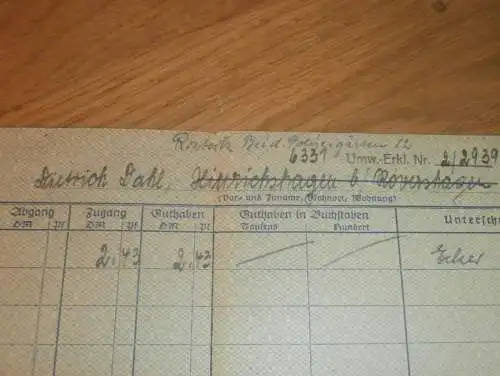 Rostock Beid. Polizeigärten 12
6339 Umw.-Erkl. Nr. 2/2939
Dietrich Dahl, Hinrichshagen b/ Rövershagen
(Vor- und Zuname, Wohnort, Wohnung)
Abgang Zugang Guthaben Guthaben in Buchstaben Unterschr
DM Pf DM Pf DM Pf Tausend Hundert
2,43 2,43